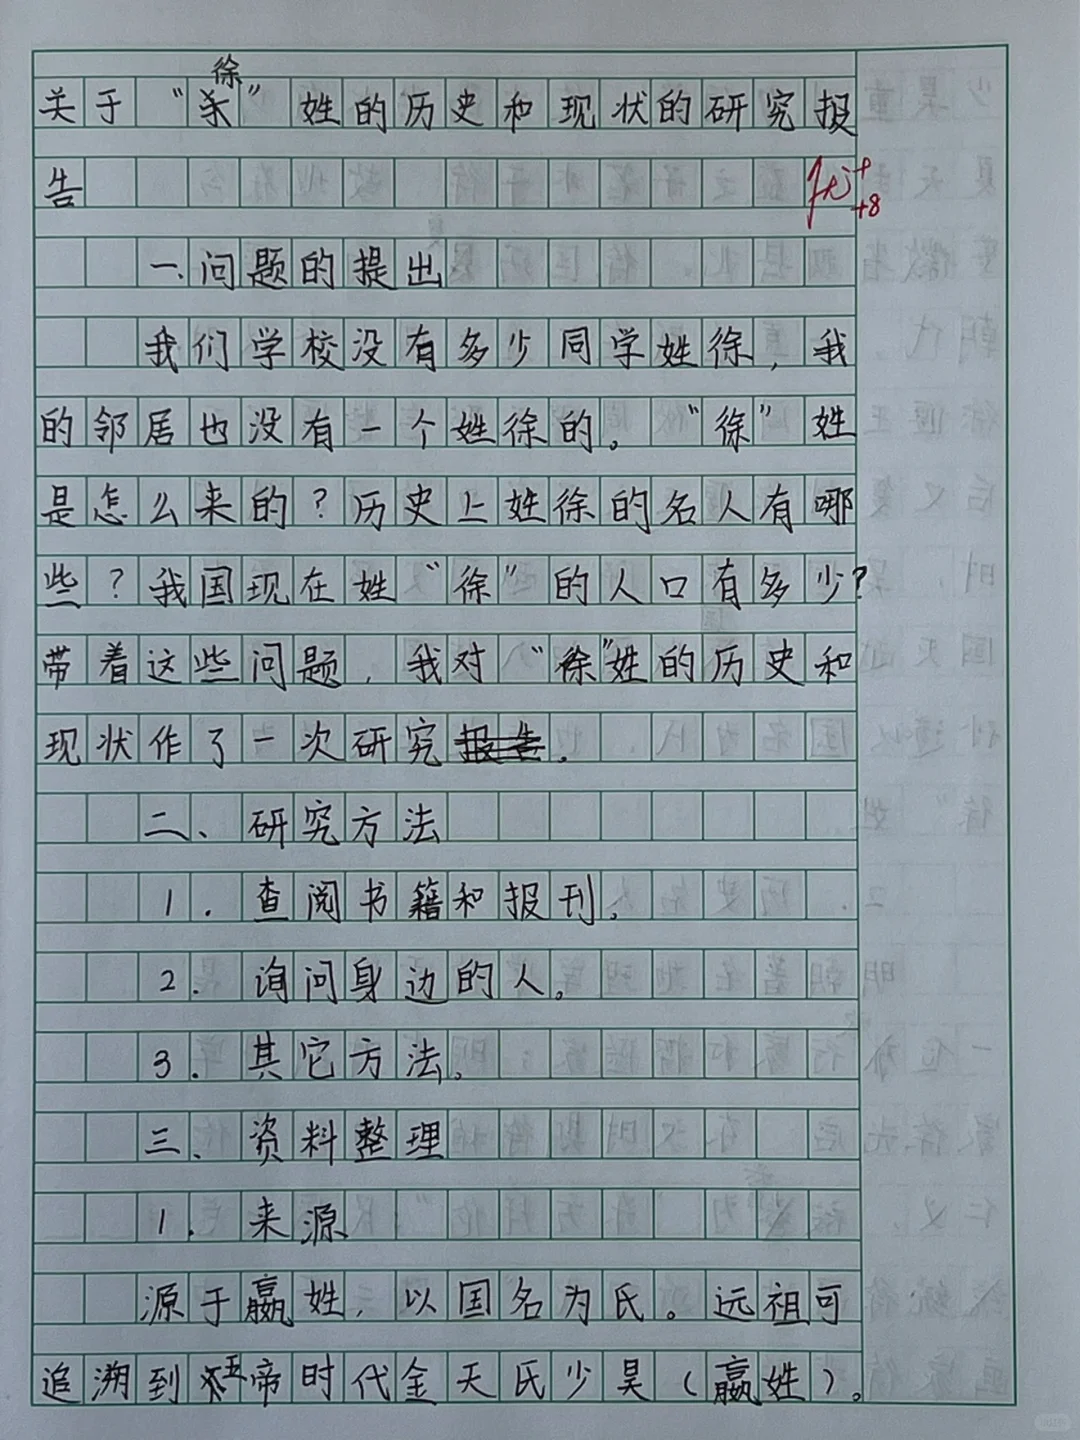 关于“徐”姓的历史和现状的研究报
告
优+
+8
一、问题的提出
我们学校没有多少同学姓徐，我
的邻居也没有一个姓徐的。“徐”姓
是怎么来的？历史上姓徐的名人有哪
些？我国现在姓“徐”的人口有多少？
带着这些问题，我对“徐”姓的历史和
现状作了一次研究。
二、研究方法
1．查阅书籍和报刊。
2．询问身边的人。
3．其它方法。
三、资料整理
1．来源
源于嬴姓，以国名为氏。远祖可
追溯到五帝时代金天氏少昊（嬴姓）。